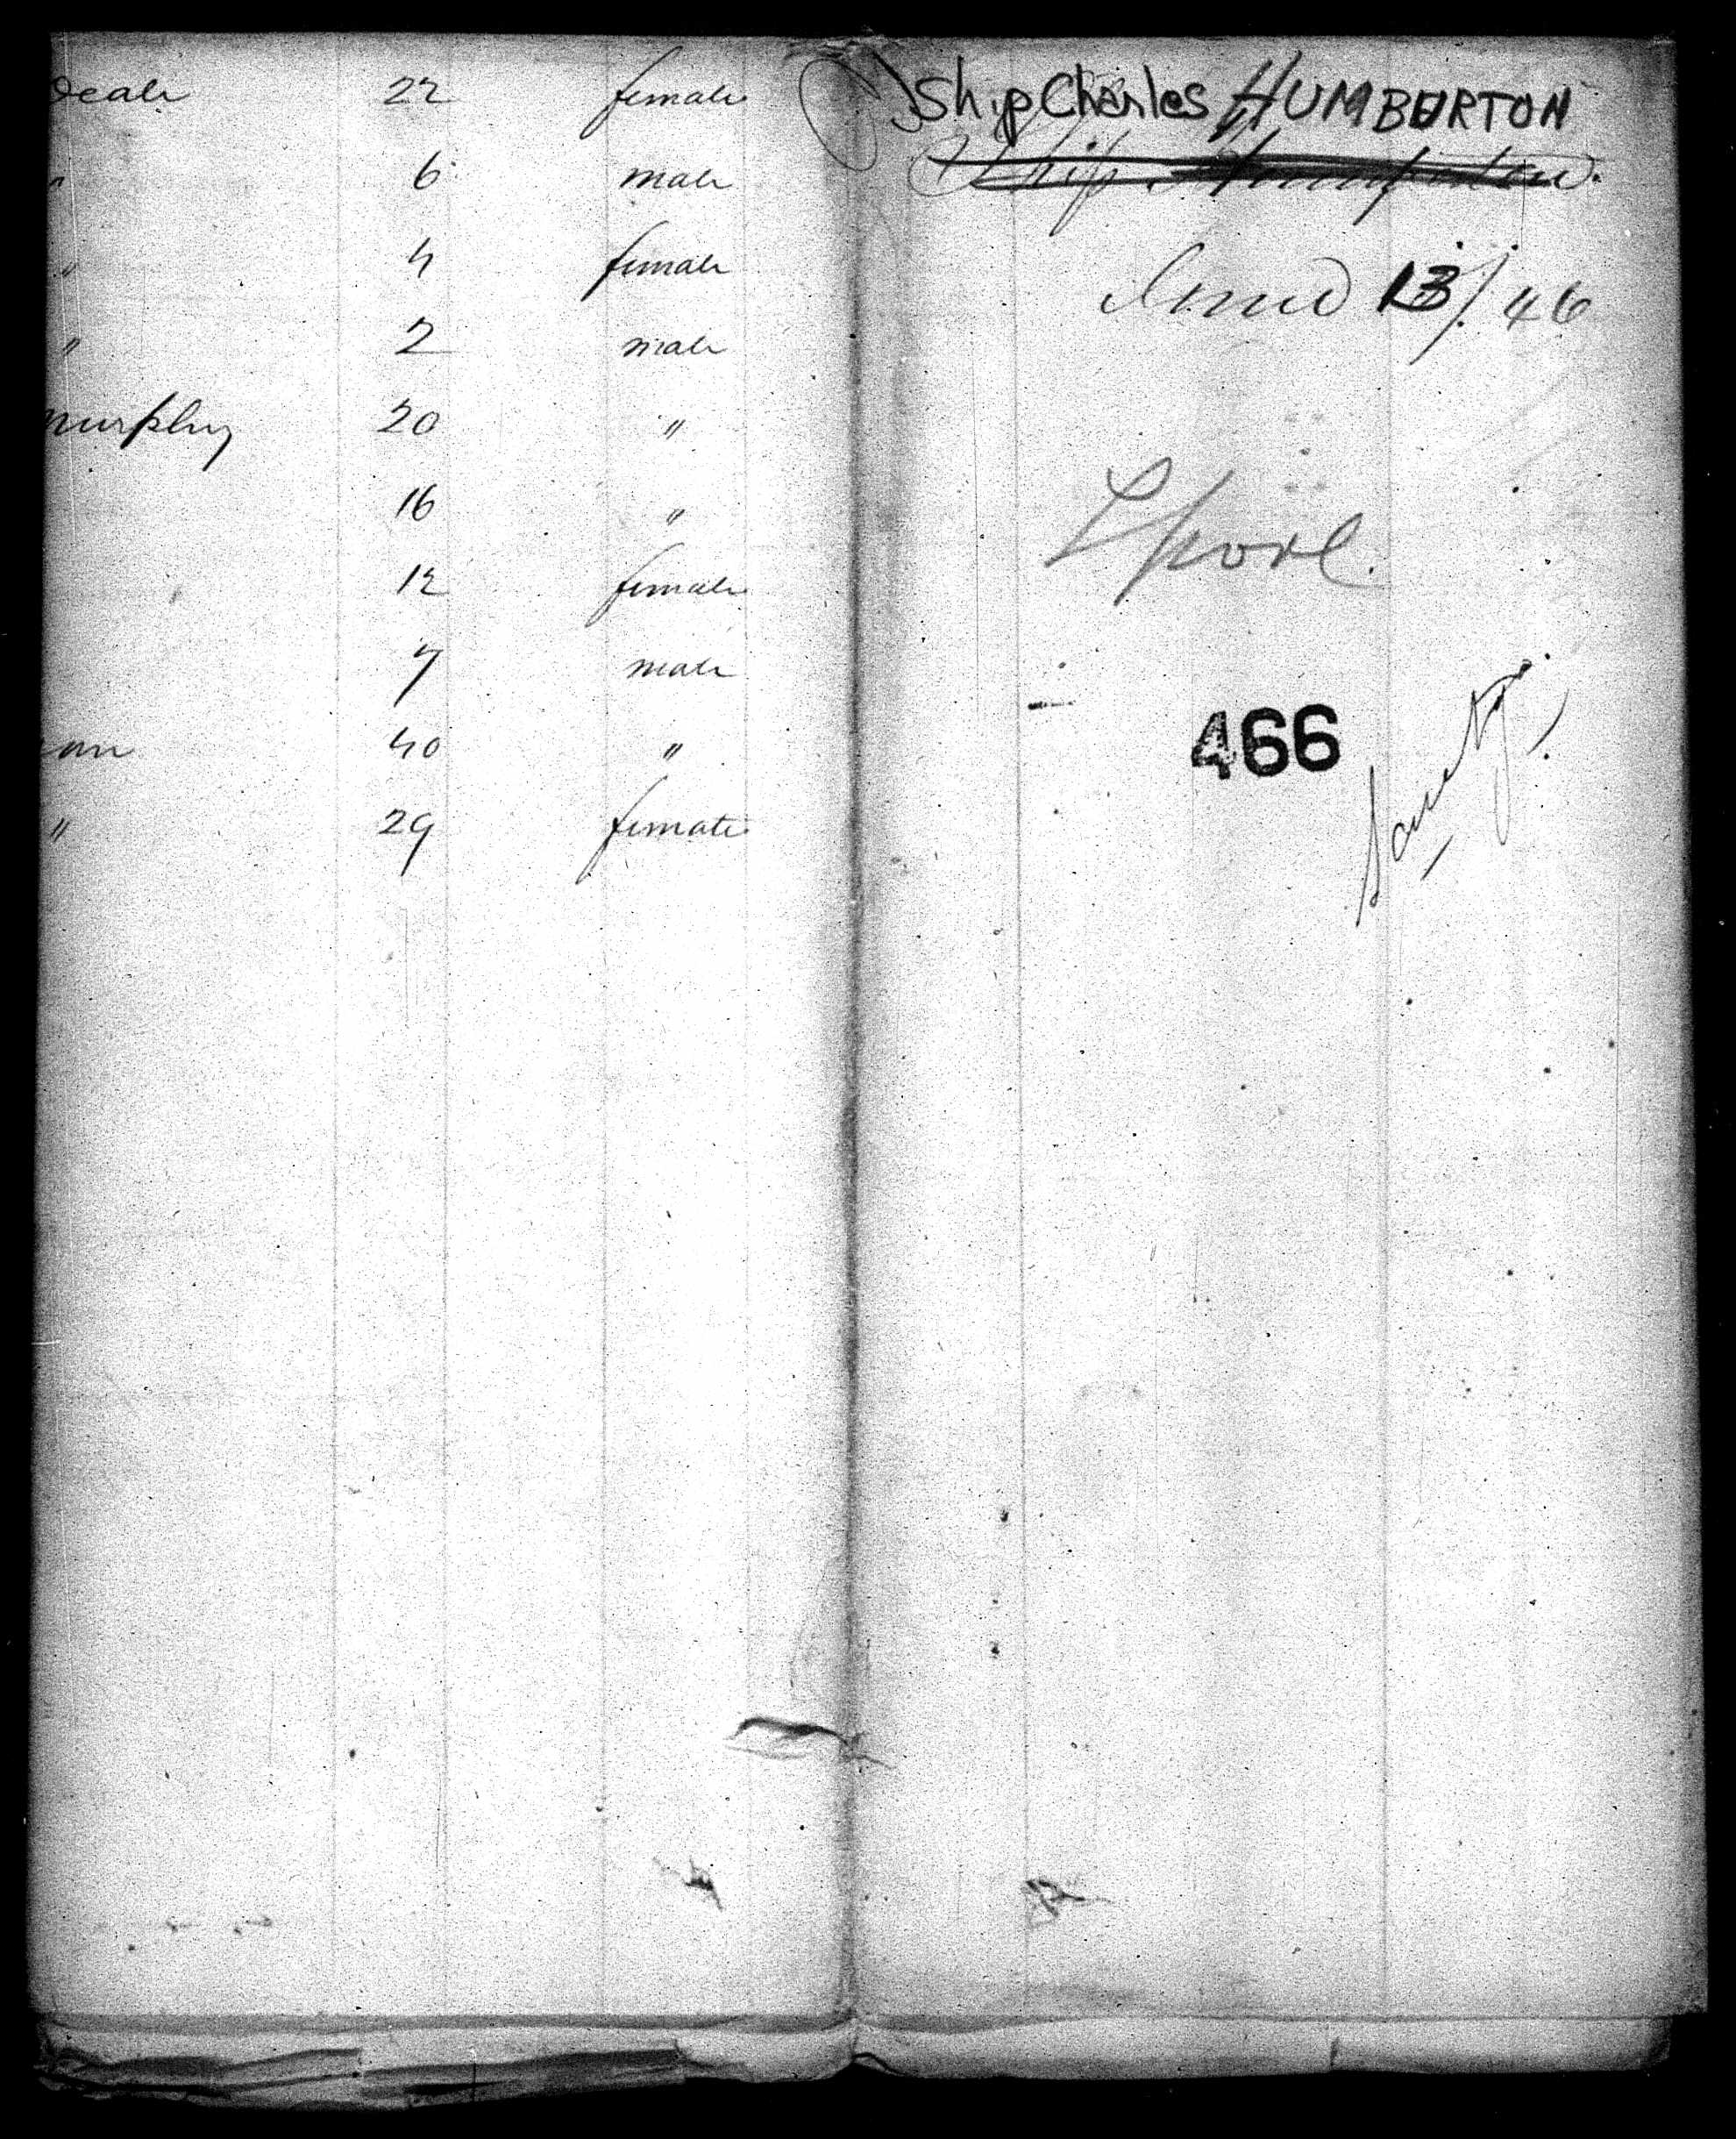 Deale 22 female
" 6 male
" 4 female
" 2 male
Murphy 20 "
16 "
12 female
7 male
an 40 "
" 29 female
Ship Charles HUMBERTON
Ship
June 13/46
Lpool.
466